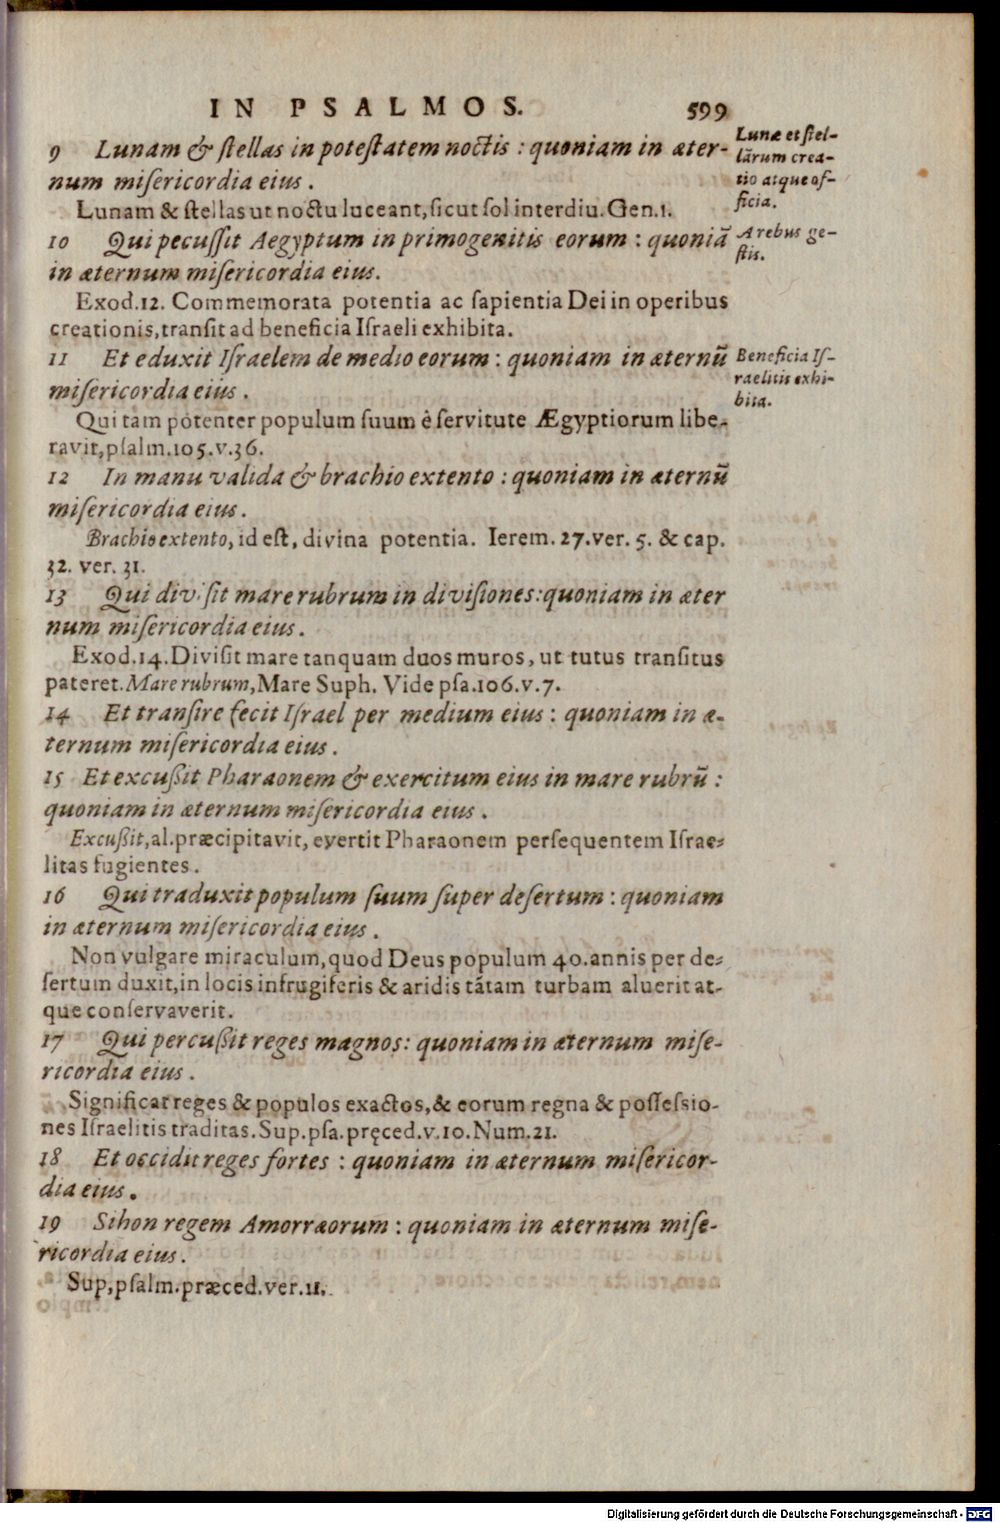 IN PSALMOS. 599
9 Lunam & ſtellas in poteſtatem noctis : quoniam in æter-
num miſericordia eius .
Lunæ et ſtel-
lārum crea-
tio atque of-
ficia.
Lunam & ſtellas ut noctu luceant, ſicut ſol interdiu. Gen.1.
10 Qui pecuſſit Aegyptum in primogenitis eorum : quoniā
in æternum miſericordia eius.
A rebus ge-
ſtis.
Exod.12. Commemorata potentia ac ſapientia Dei in operibus
creationis, tranſit ad beneficia Iſraeli exhibita.
11 Et eduxit Iſraelem de medio eorum : quoniam in æternū
miſericordia eius .
Beneficia Iſ-
raelitis exhi-
bita.
Qui tam potenter populum ſuum è ſervitute Ægyptiorum libe-
ravit, pſalm.105.v.36.
12 In manu valida & brachio extento : quoniam in æternū
miſericordia eius .
Brachio extento, id eſt, divina potentia. Ierem. 27.ver. 5. & cap.
32. ver. 31.
13 Qui diviſit mare rubrum in diviſiones: quoniam in æter
num miſericordia eius .
Exod.14. Diviſit mare tanquam duos muros, ut tutus tranſitus
pateret. Mare rubrum, Mare Suph. Vide pſa.106.v.7.
14 Et tranſire fecit Iſrael per medium eius : quoniam in æ-
ternum miſericordia eius .
15 Et excußit Pharaonem & exercitum eius in mare rubrū :
quoniam in æternum miſericordia eius .
Excußit, al. præcipitavit, evertit Pharaonem perſequentem Iſrae-
litas fugientes .
16 Qui traduxit populum ſuum ſuper deſertum : quoniam
in æternum miſericordia eius .
Non vulgare miraculum, quod Deus populum 40. annis per de-
ſertum duxit, in locis infrugiferis & aridis tātam turbam aluerit at-
que conſervaverit.
17 Qui percußit reges magnos: quoniam in æternum miſe-
ricordia eius .
Significat reges & populos exactos, & eorum regna & poſſeſsio-
nes Iſraelitis traditas. Sup. pſa. pręced. v.10. Num.21.
18 Et occidit reges fortes : quoniam in æternum miſericor-
dia eius .
19 Sihon regem Amorræorum : quoniam in æternum miſe-
ricordia eius .
Sup, pſalm. præced. ver. 11.
Digitalisierung gefördert durch die Deutsche Forschungsgemeinschaft - DFG